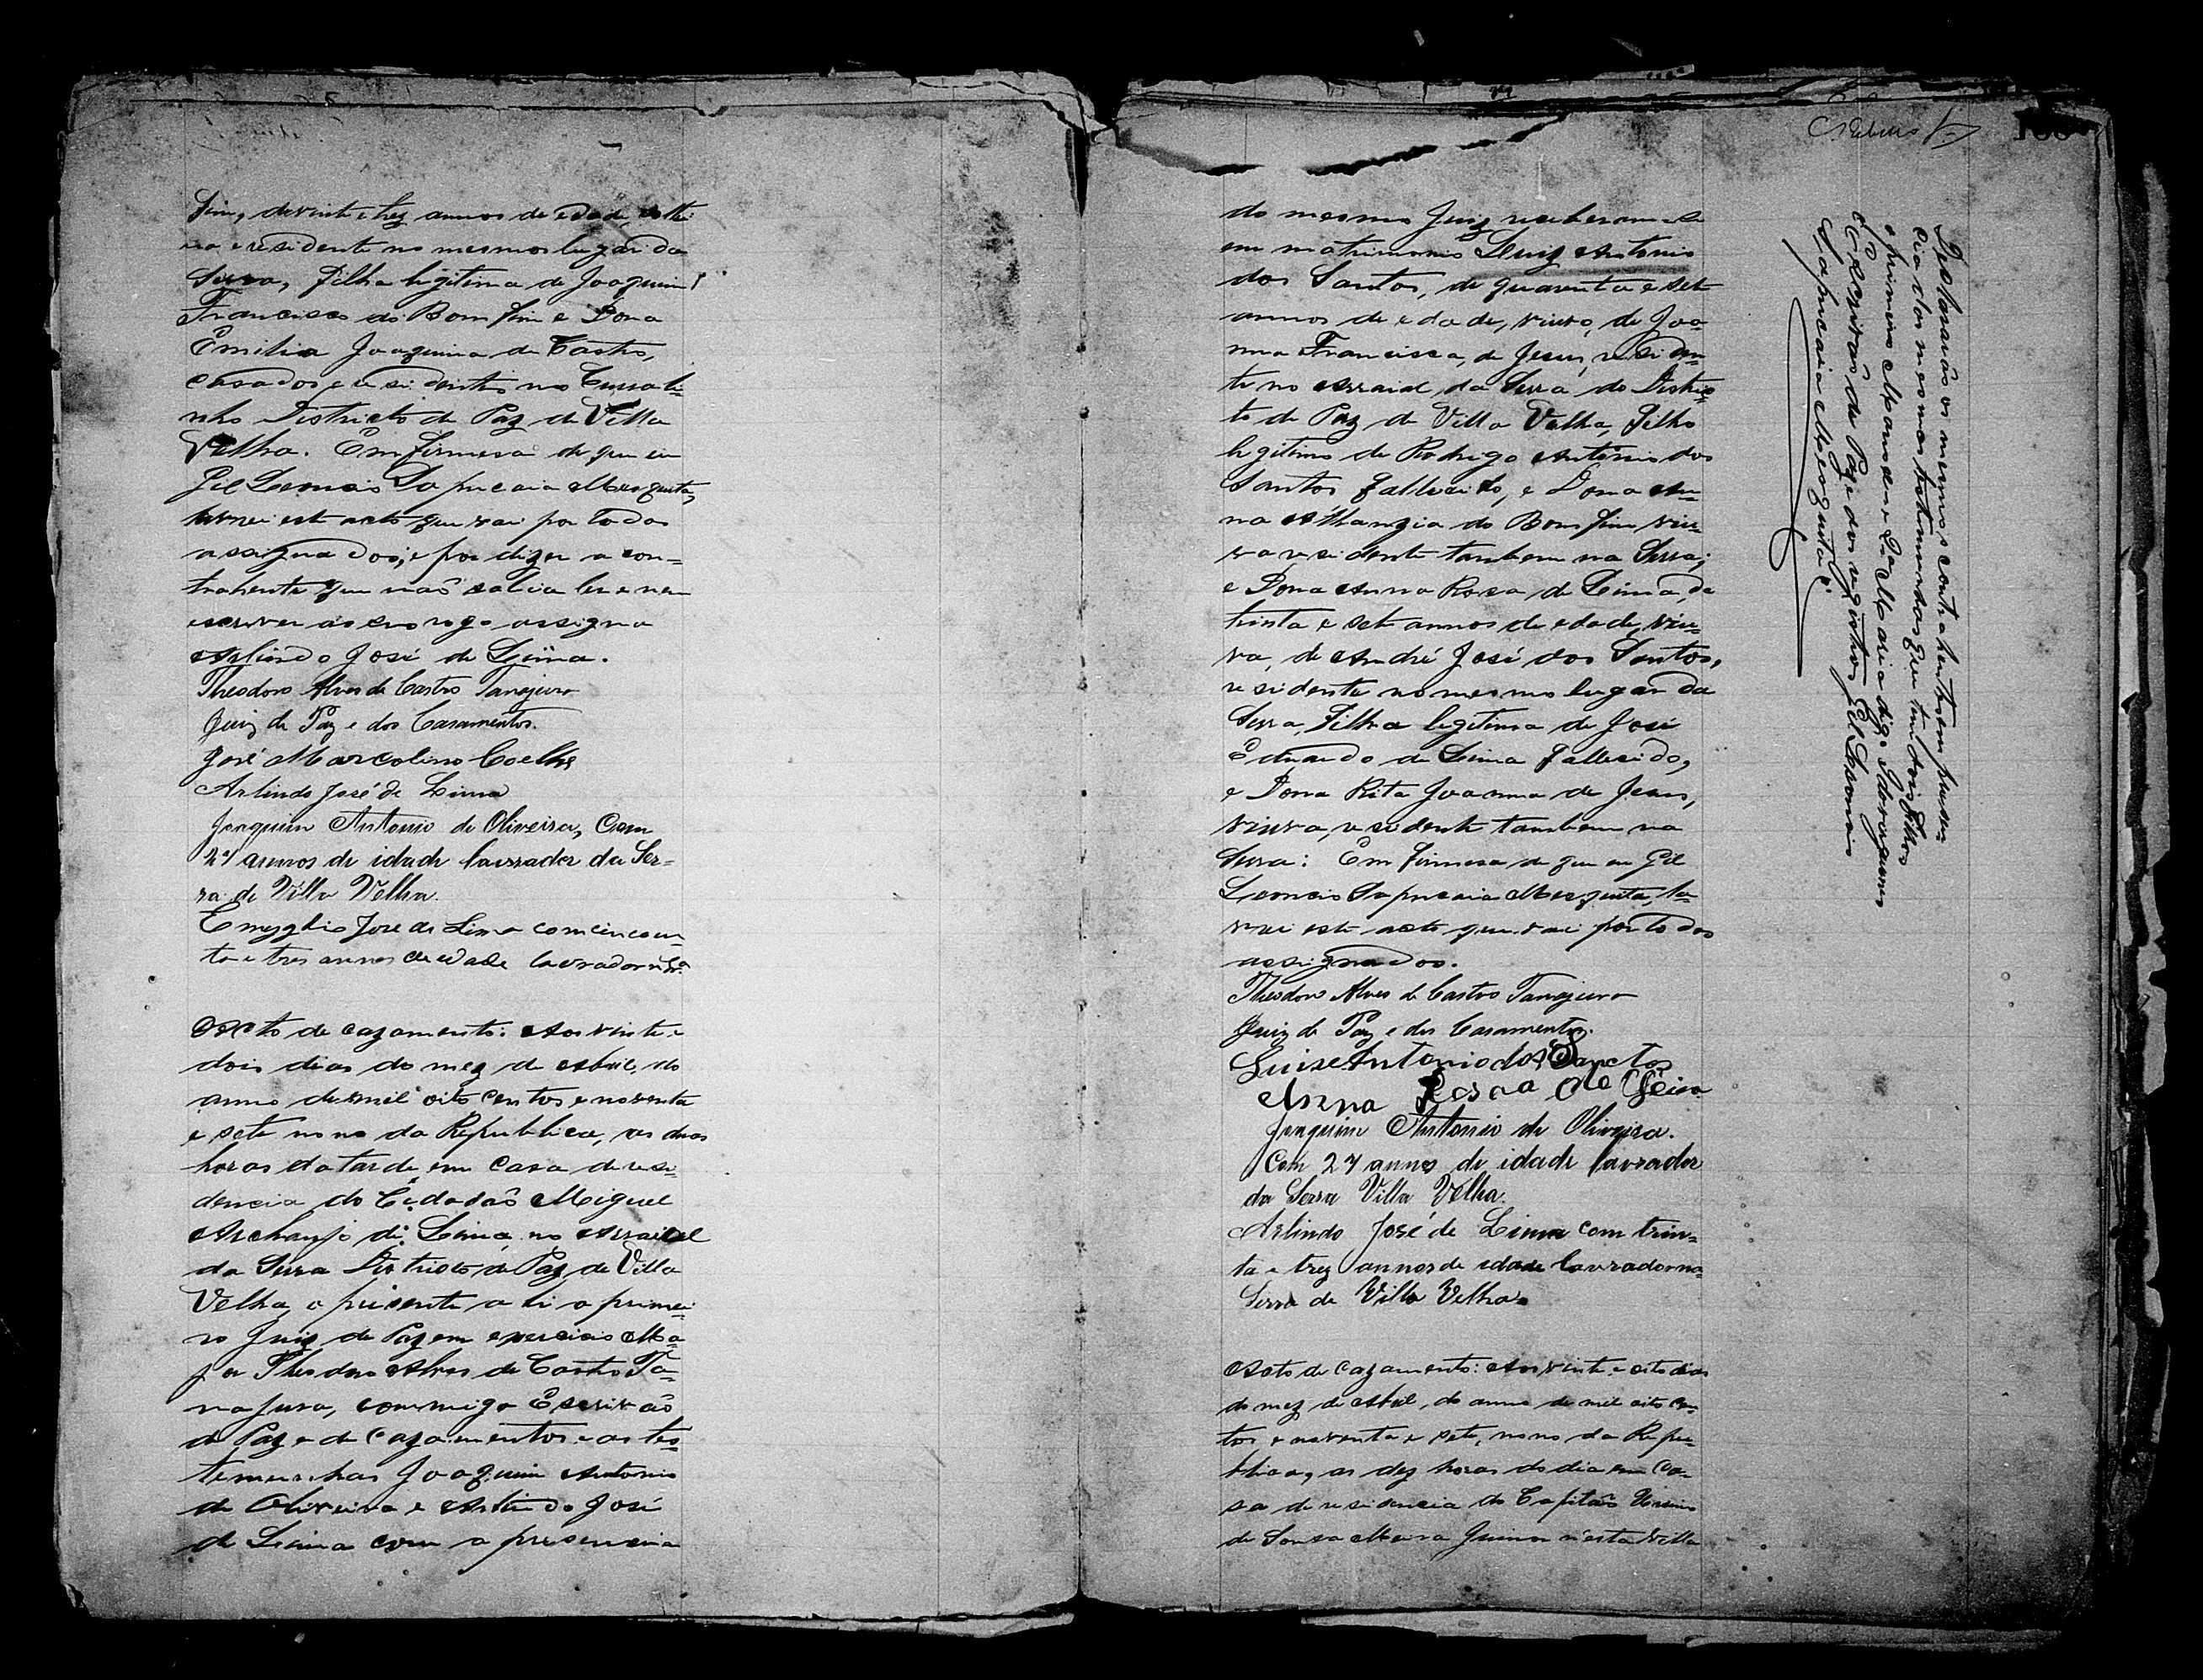 fim, de vinte e trez annos de edade, soltei
ra e residente no mesmo lugar da
Serra, filha legitima de Joaquim
Francisco do Bom fim e Dona
Emilia Joaquina de Castro,
casados e residentes no Currali-
nho Districto de Paz de Villa
Velha. Em firmesa de que eu
Gil Leoncio Sapucaia Mesquita,
lavrei este acto que vai por todos
assignados; e por dizer a con-
trahente que não sabia ler e nem
escrever a seu rogo assigna
Arlindo José de Lima.
Theodoro Alves de Castro Tanajura
Juiz de Paz e dos Casamentos.
José Marcolino Coelho
Arlindo José de Lima
Joaquim Antonio de Oliveira, Com
27 annos de idade lavrador da Ser-
ra de Villa Velha.
Emygdio Jose de Lima com cincoen-
ta e tres annos de edade lavrador
Acto de cazamento: Aos vinte e
dois dias do mez de Abril, do
anno de mil oito centos e noventa
e sete nono da Republica, as duas
horas da tarde em casa de resi
dencia do Cidadão Miguel
Archanjo de Lima, no Arraial
da Serra Districto de Paz de Villa
Velha, o presente ali o primei
ro Juiz de Paz em exercicio Ma-
jor Theodoro Alves de Castro Ta-
najura, commigo Escrivão
de Paz e de Cazamentos e as tes
temunhas Joaquim Antonio
de Oliveira e Arlindo José
de Lima com a presencia
do mesmo Juiz receberam-se
em matrimonio Luiz Antonio
dos Santos, de quarenta e sete
annos de edade, viuvo, de Joa-
nna Francisca, de Jesus, residen-
te no Arraial da Serra do Distric-
to de Paz de Villa Velha, filho
legitimo de Rodrigo Antonio dos
Santos fallecido, e Dona An-
na Athanzia do Bom fim viu-
va residente tambem na Serra;
e Dona Anna Rosa de Lima, de
trinta e sete annos de edade, viu-
va, de André José dos Santos,
residente no mesmo lugar da
Serra, Filha legitima de José
Eduardo de Lima fallecido,
e Dona Rita Joanna de Jesus,
viuva, residente tambem na
Serra: Em firmesa de que eu Gil
Leoncio Sapucaia Mesquita, la-
vrei este acto que vai por todos
assignados.
Theodoro Alves de Castro Tanajura
Juiz de Paz e dos Casamentos.
Luis Antonio dos Sanctos
Anna Rosa de Leima
Joaquim Antonio de Oliveira.
Com 27 annos de idade lavrador
da Serra Villa Velha.
Arlindo José de Lima com trin-
ta e trez annos de idade lavrador na
Serra de Villa Velha.
Acto de Cazamento: Aos vinte e oito dias
do mez de Abril, do anno de mil oito cen
tos e noventa e sete, nono da Repu-
blica, as dez horas do dia em ca-
sa de residencia do Capitão
de Sousa Meira Junior n'esta Villa
Declararão os mesmos contrahentes em presen
cia dos mesmos testemunhas que tem dois filhos
o primeiro e Maria digo
O Escrivão de Paz e dos registros Gil Leoncio
Sapucaia Mesquita.